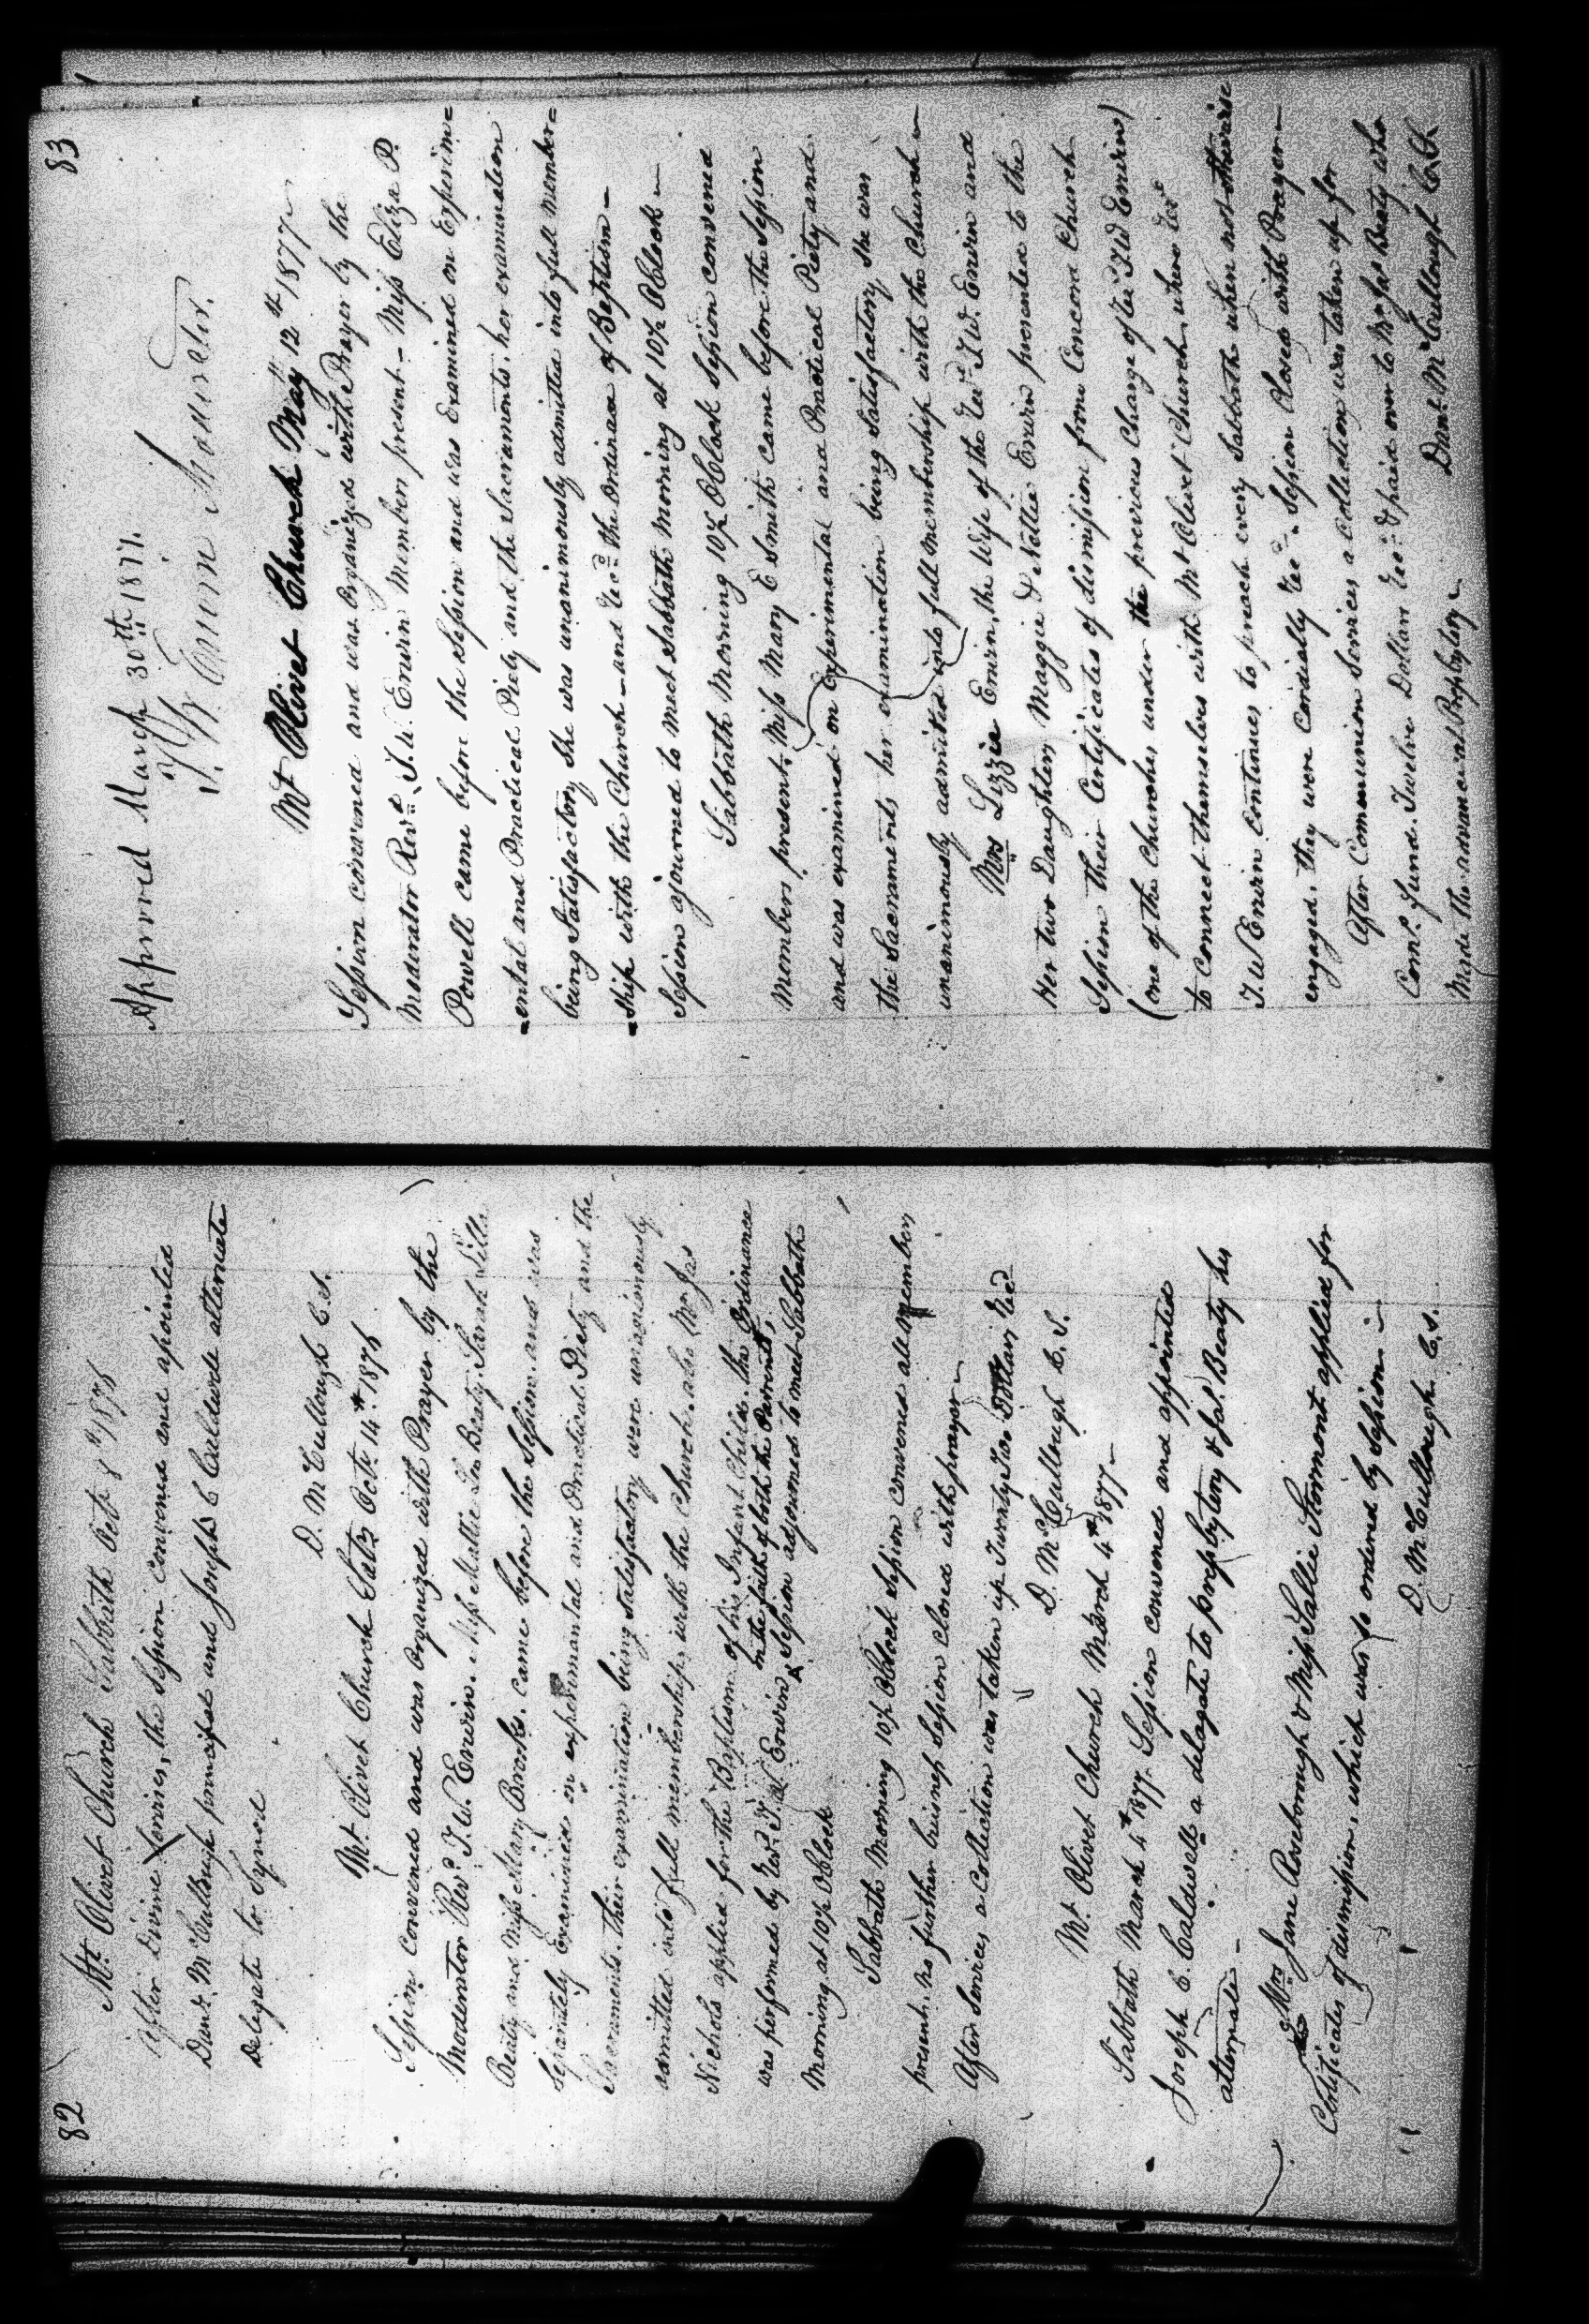 82
Mt. Olivet Church Sabbath Oct. 8th 1876
After Divine Services, the Session convened and apointed
Danl. McCullough principal and Joseph C Caldwell alternate
Delegate to Synod
D. McCullough C.S.
Mt. Olivet Church Satr. Octr. 14th 1876
Session convened and was organized with Prayer by the
Moderator Revd. T.W. Erwin. Miss Mattie Lou Beaty. Sarah Lilla
Beaty and Miss Mary Brooks. came before the Session. and was
separately Examined on experimental and Practical Piety and the
Sacraments. their examination being satisfactory were unanimously
admitted into full membership with the Church. also Mr. Jas
Nichols applied for the Baptism of his Infant Child. the Ordinance
on the faith of both the Parrents,
was performed by Revd. T.W. Erwin & Session adjourned to meet Sabbath
Morning at 10½ OClock
Sabbath Morning 10½ OClock Session convened all members
present. no further buisness Session closed with prayer
After Services a Collection was taken up Twenty Two Dollars Recd
D. McCullough C.S.
Mt. Olivet Church March 4th 1877
Sabbath March 4th 1877. Session convened and appointed
Joseph C. Caldwell a delagate to presbytery & Jas. Beaty his
alternate
Mrs Jane Roseborough & Miss Sallie Stormont applied for
Certificates of dismission, which was so ordered by Session
D. McCullough C.S.
83
Approved March 30th 1877.
T. W. Erwin Moderator.
Mt Olivet Church May 12th 1877
Session convened and was organized with Prayer by the
Moderator Revd. T.W. Erwin Members present – Miss Eliza P.
Powell came before the Session and was Examined on Experim=
=ental and Practical Piety and the Sacraments. her examination
being Satisfactory She was unanimously admitted into full member=
=ship with the Church – and Recd. the Ordinance of Baptism –
Session ajourned to meet Sabbath Morning at 10½ OClock –
Sabbath Morning 10½ OClock Session convened
Members present. Miss Mary E Smith came before the Session
and was examined on Experimental and Practical Piety and
the Sacraments her examination being Satisfactory She was
unanimously admited into full membership with the Church –
Mrs Lizzie Erwin, the Wife of the Revd. T.W. Erwin and
Her two Daughters Maggie & Nettie Erwin presented to the
Session their Certificates of dismission from Concord Church
(one of the Churches under the previous Charge of Revd T.W Erwin)
to Connect themselves with Mt Olivet Church, where Revd
T.W Erwin Continues to preach every Sabbath when not otherwise
engaged, they were Cordially Recd. Session Closed with Prayer –
After Communion Services a Collection was taken up for
Comn. Fund. Twelve Dollars Recd. & paid over to Mr Jas Beaty who
Made the advance in Presbytery – Danl. McCullough C.S.